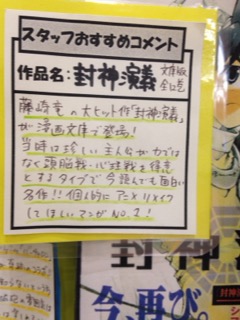 スタッフおすすめコメント
作品名:封神演義 文庫版
藤崎竜の大ヒット作「封神演義」
が漫画文庫で登場!
当時は珍しい主人公が力では
なく頭脳戦・心理戦を得意
とするタイプで今読んでも面白い
名作!!個人的にアニメリメイク
してほしいマンガNO.1!
封神
今、再び。